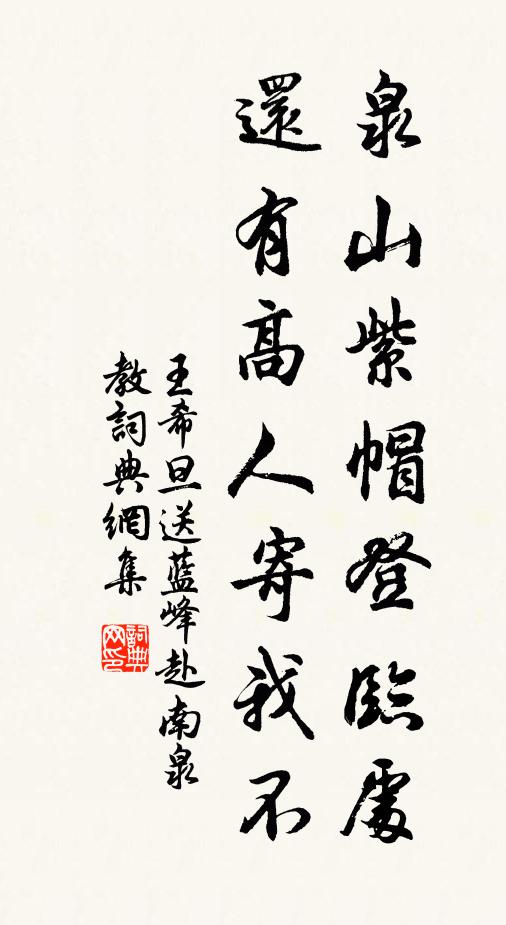 泉山紫帽登臨處
還有高人寄我不
王希旦送藍峰赴南泉
教詞典網集
詞典
网印